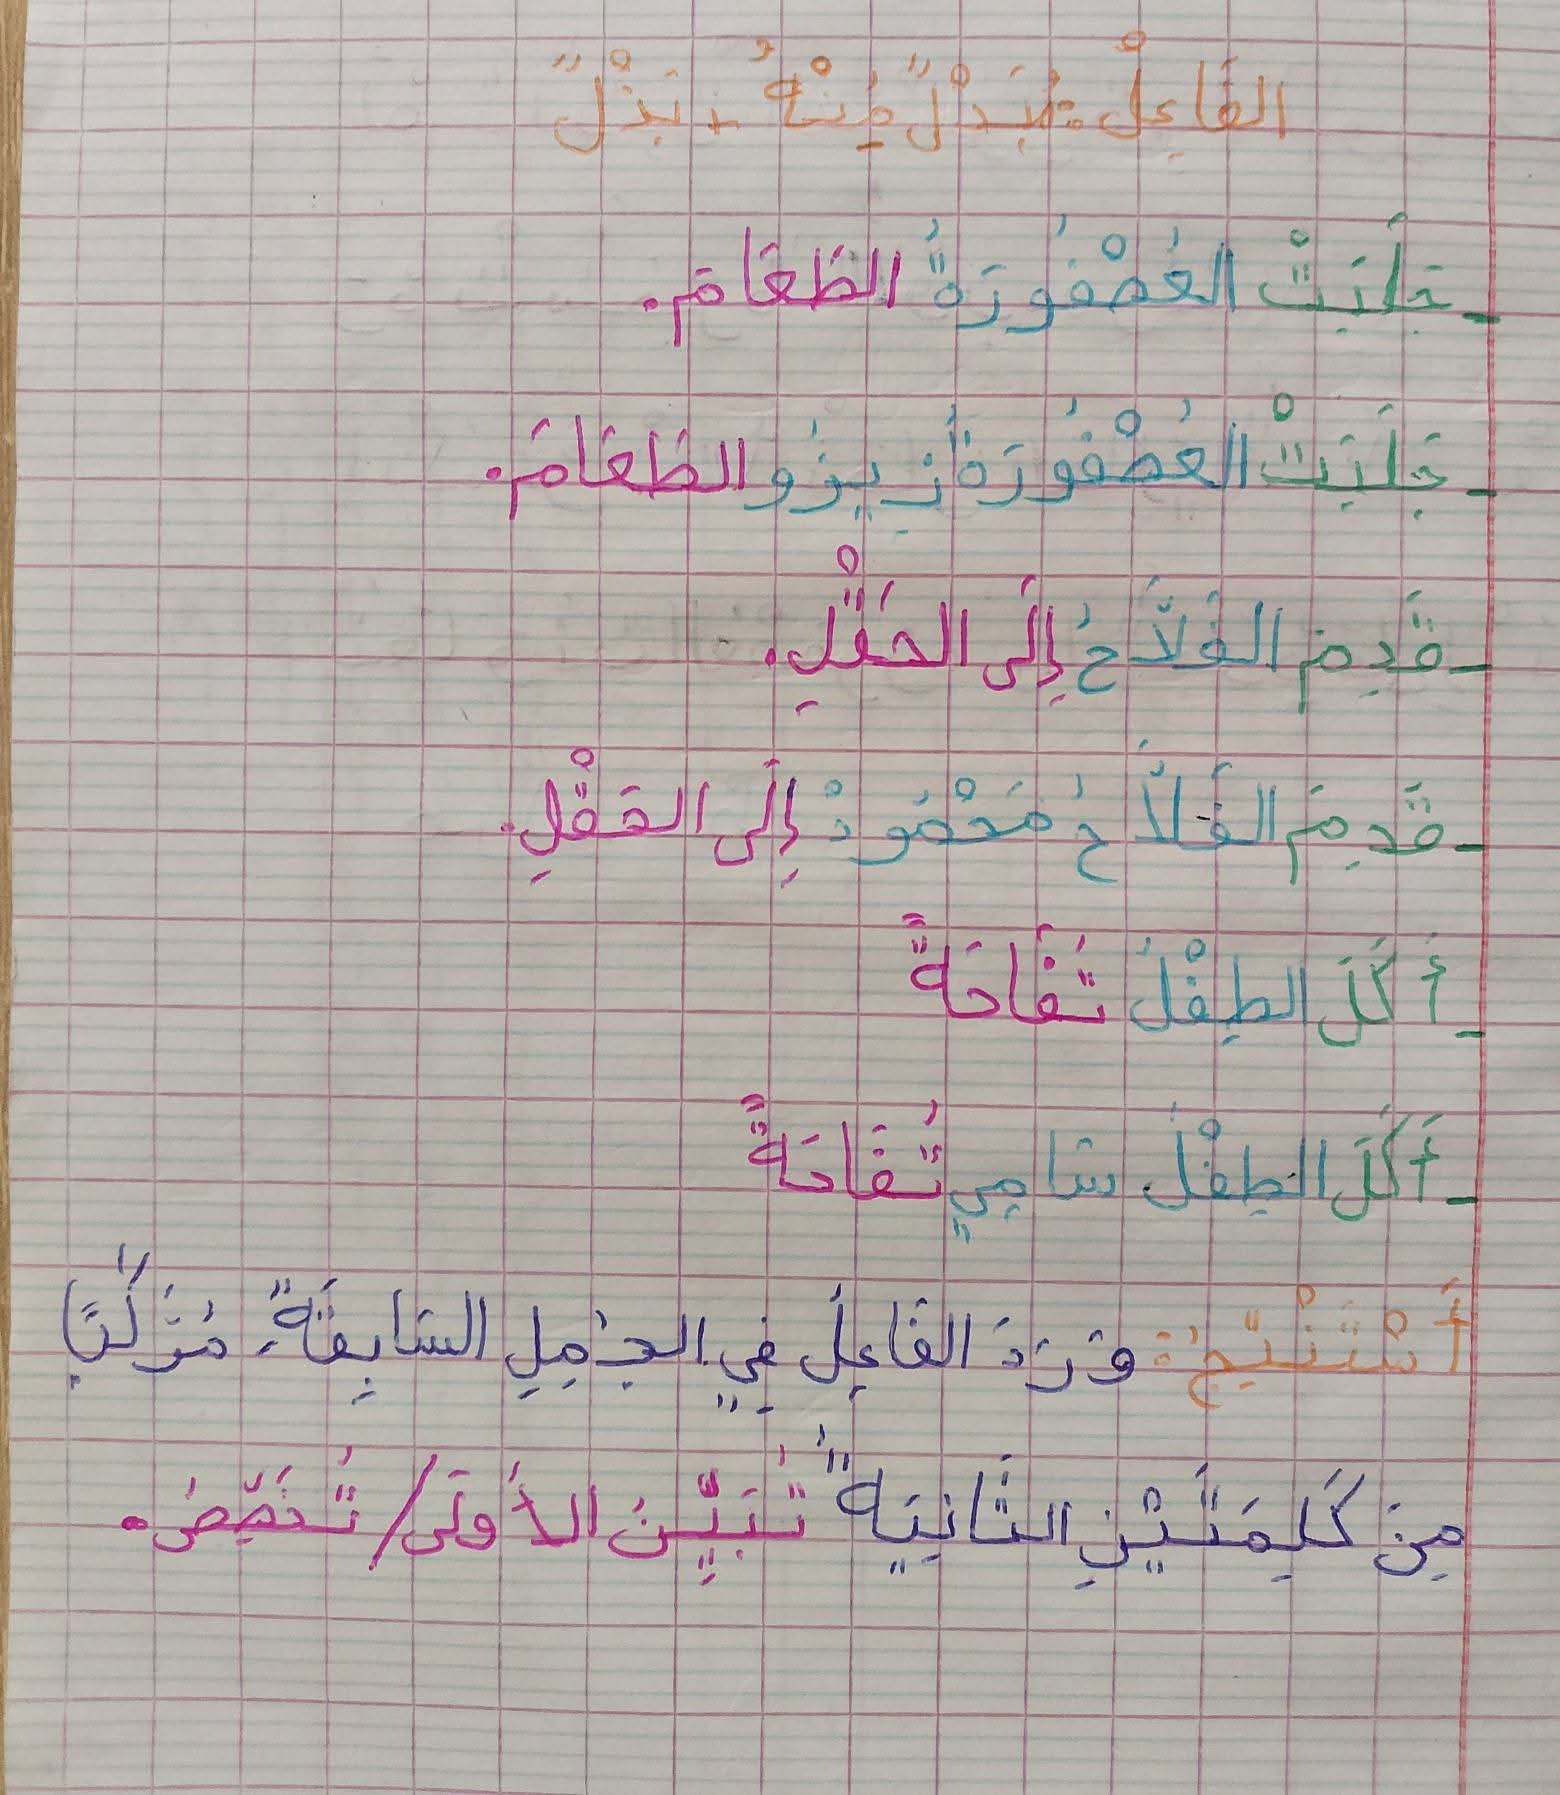 الفَاعِلْ: مُبَدْلٌ مِنْهُ + بَدْلٌ
- جَلَبَتْ العُصْفُورَةُ الطَعَامَ.
- جَلَبَتْ العُصْفُورَةُ زِيزُو الطَعَامَ.
- قَدِمَ الفَلاَّحُ إِلَى الحَقْلِ.
- قَدِمَ الفَلاَّحُ مَحْمُودْ إِلَى الحَقْلِ.
- أَكَلَ الطِفْلُ تُفَاحَةً
- أَكَلَ الطِفْلُ سَامِي تُفَاحَةً
أَسْتَنْتِجُ: وَرَدَ الفَاعِلُ فِي الجُمِلِ السَابِقَةِ مُرَكَّبًا
مِنَ كَلِمَتَيْنِ الثَانِيَةُ تُبَيِّنَ الأُولَى / تُخَصِّصُ.